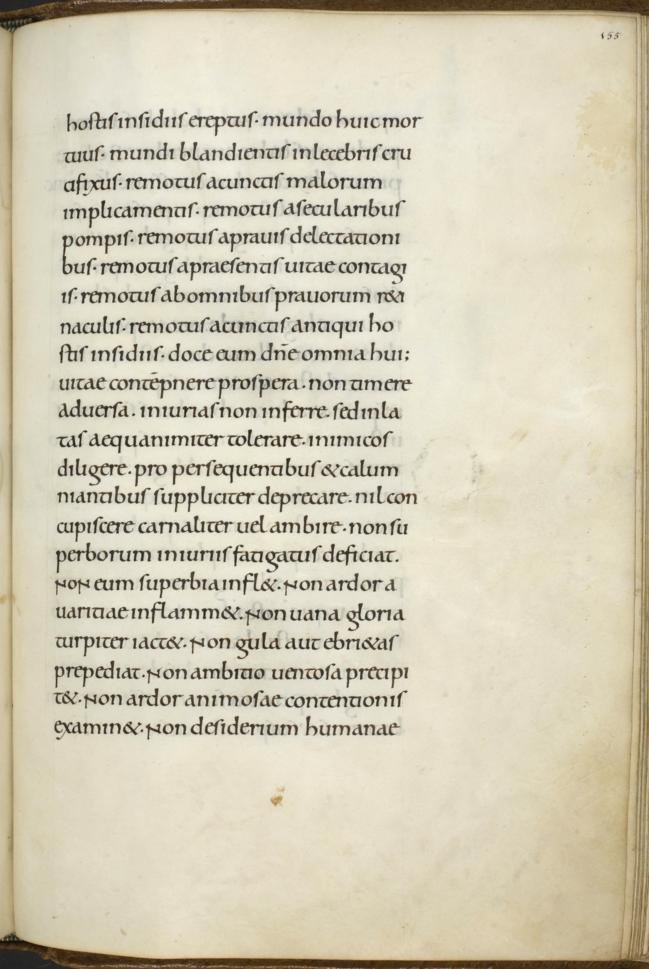 155
hostis insidiis ereptus· mundo huic mor
tuus· mundi blandientis inlecebris cru
cifixus· remotus acunctis malorum
implicamentis· remotus asecularibus
pompis· remotus aprauis delectationi
bus· remotus apraesentis uitae contagi
is· remotus abomnibus prauorum r&i
naculis· remotus acunctis antiqui ho
stis insidiis· doce eum dñe omnia hui;
uitae contēpnere prospera· non timere
adversa· iniurias non inferre· sed inla
tas aequanimiter tolerare· inimicos
diligere· pro persequentibus &calum
niantibus suppliciter deprecare· nil con
cupiscere carnaliter uel ambire· non su
perborum iniuriis fatigatus deficiat.
Non eum superbia infl&· Non ardor a
uaritiae inflamm&· Non uana gloria
turpiter iact&· Non gula aut ebri&as
prepediat· Non ambitio uentosa precipi
t&· Non ardor animosae contentionis
examin&· Non desiderium humanae